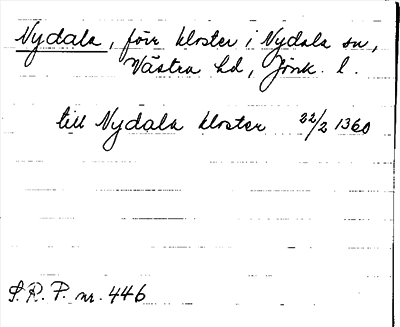 Nydala, förr kloster i Nydala sn,
Västra hd, Jönk. l.
till Nydala kloster 22/2 1360
S.R.P. nr. 446